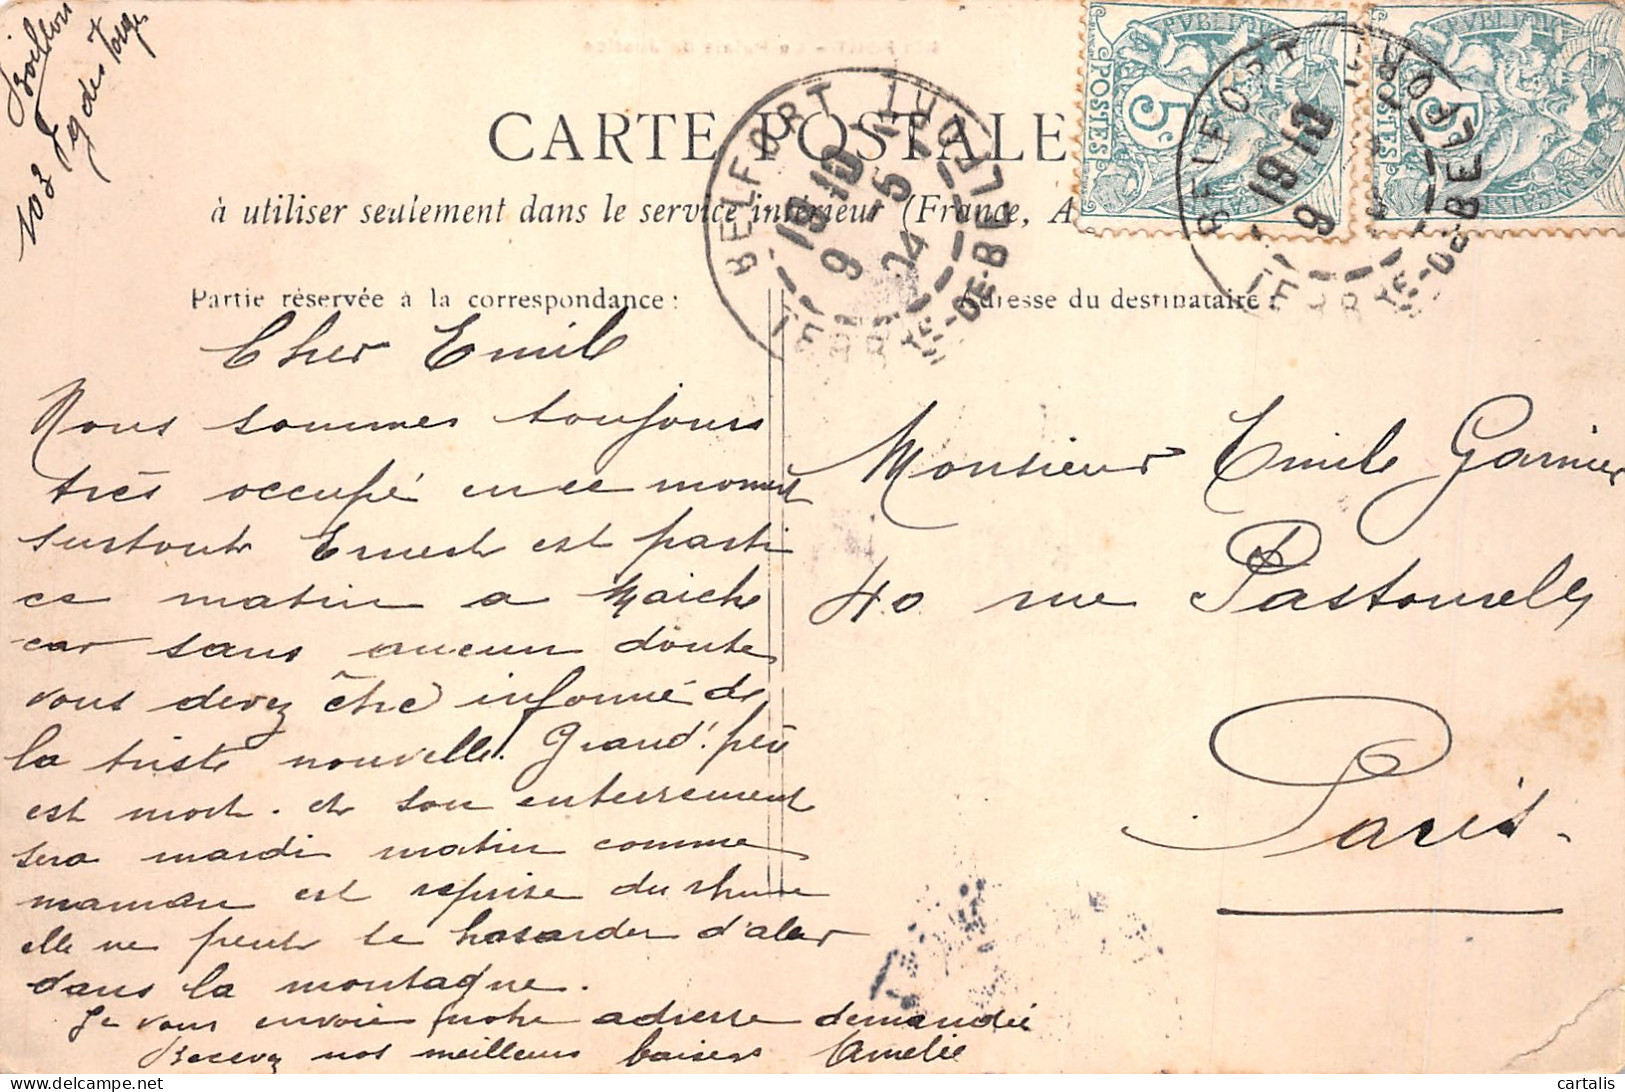 Bouillon
103 Fg des Vosges
CARTE POSTALE
à utiliser seulement dans le service intérieur (France, A
Partie réservée à la correspondance :
Adresse du destinataire :
BELFORT
19 10
9 5
04
TERRre-DE-BELFORT
POSTES
5c
BELFORT
19 10
9
TERRre-DE-BELFORT
POSTES
5c
Cher Emile
Nous sommes toujours
très occupé en ce moment
surtout Ernest est parti
ce matin a Maiche
car sans aucun doute
vous devez être informé de
la triste nouvelle. Grand'père
est mort. et son enterrement
sera mardi matin comme
maman est reprise du rhume
elle ne peut se hasarder d'aler
dans la montagne.
Je vous envoie notre adresse demandée
Recevez nos meilleurs baisers Amelie
Monsieur Emile Garnier
40 rue Pastourelle
Paris.
cartalis
delcampe.net